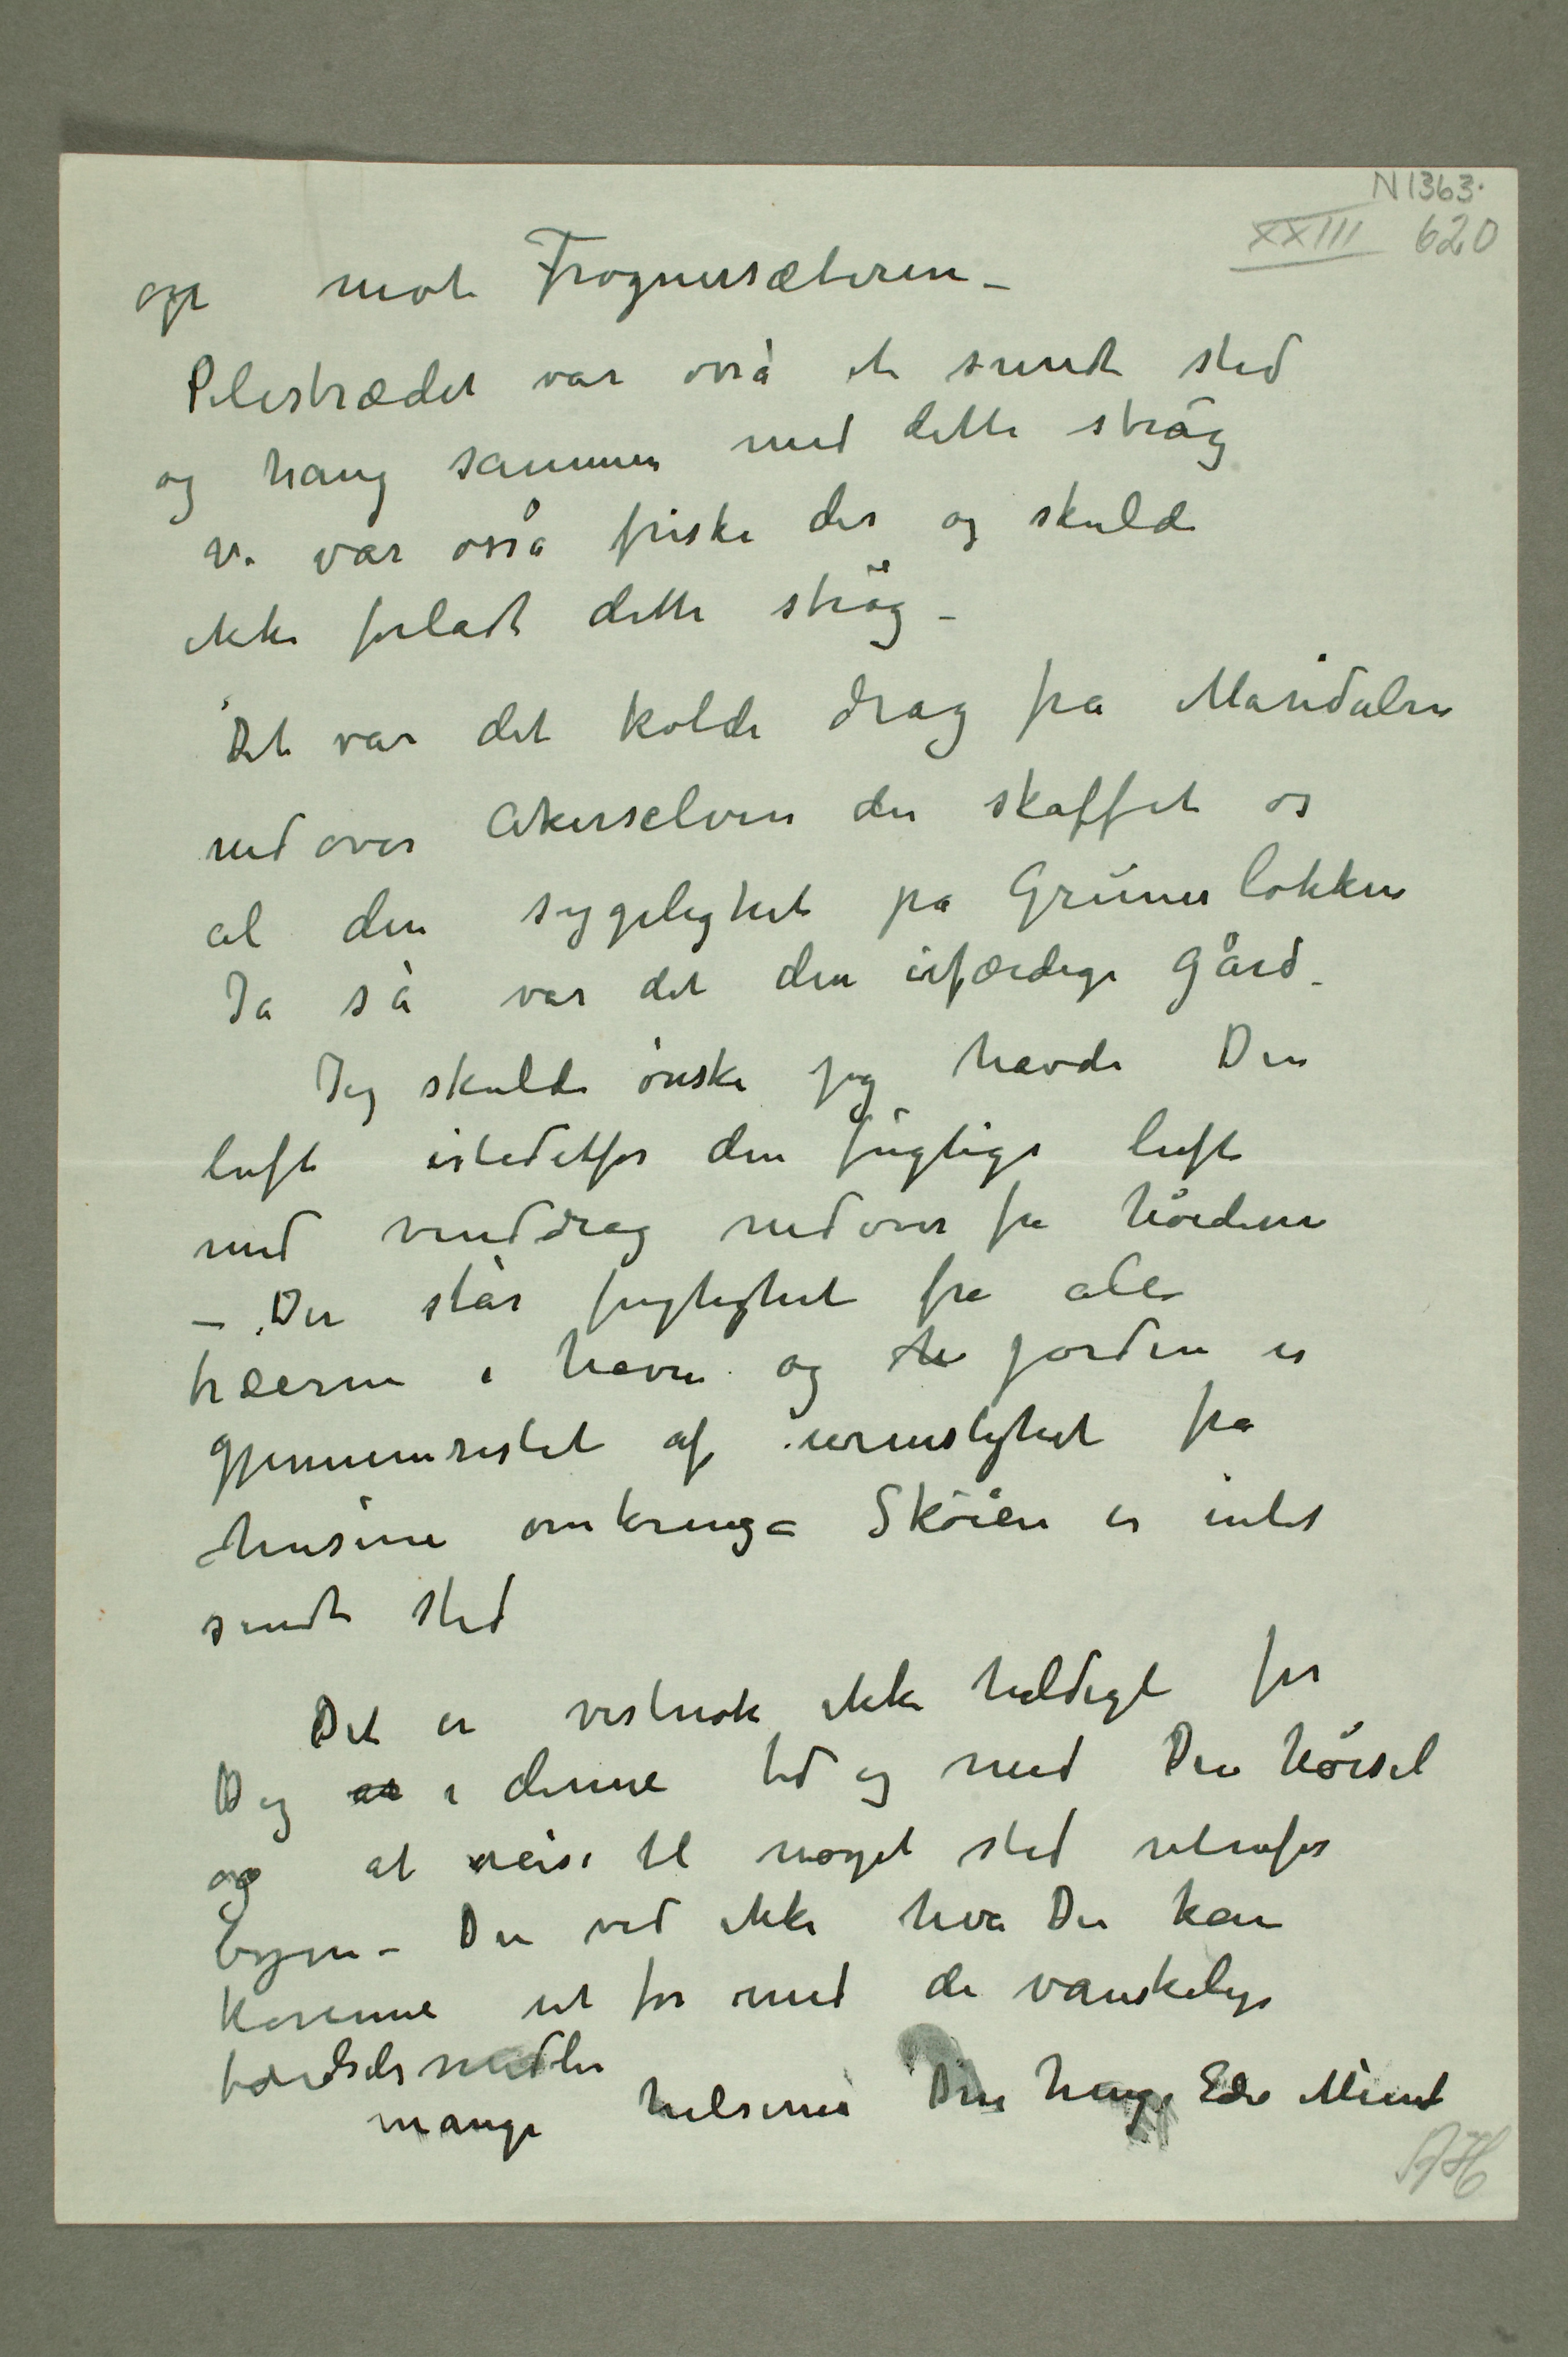 N 1363.
XXIII 620
op mot Frognersæteren –
Pilestrædet var osså et sundt sted
og hang sammen med dette strøg
Vi var osså friske der og skulde
ikke forladt dette strøg –
Det var det kolde drag fra Maridalen
nedover Akerselven der skaffet os
al den sygelighet på Grünerløkken
Ja så var det den ufærdige gård –
Jeg skulde ønske jeg havde Din
luft istedetfor den fugtige luft
med vinddrag nedover fra høiderne
– Der står fugtighet fra alle
træerne i haven og jorden er
gjennemristet af urenslighet fra
husene omkring – Skøien er intet
sundt sted
Det er vistnok ikke heldigt for
Dig i denne tid og med Din hørsel
og at reise til noget sted utenfor
byen – Du ved ikke hva Du kan
komme ut for med de vanskelige
færdselsmidler
mange hilsener Din heng. Edv Munch